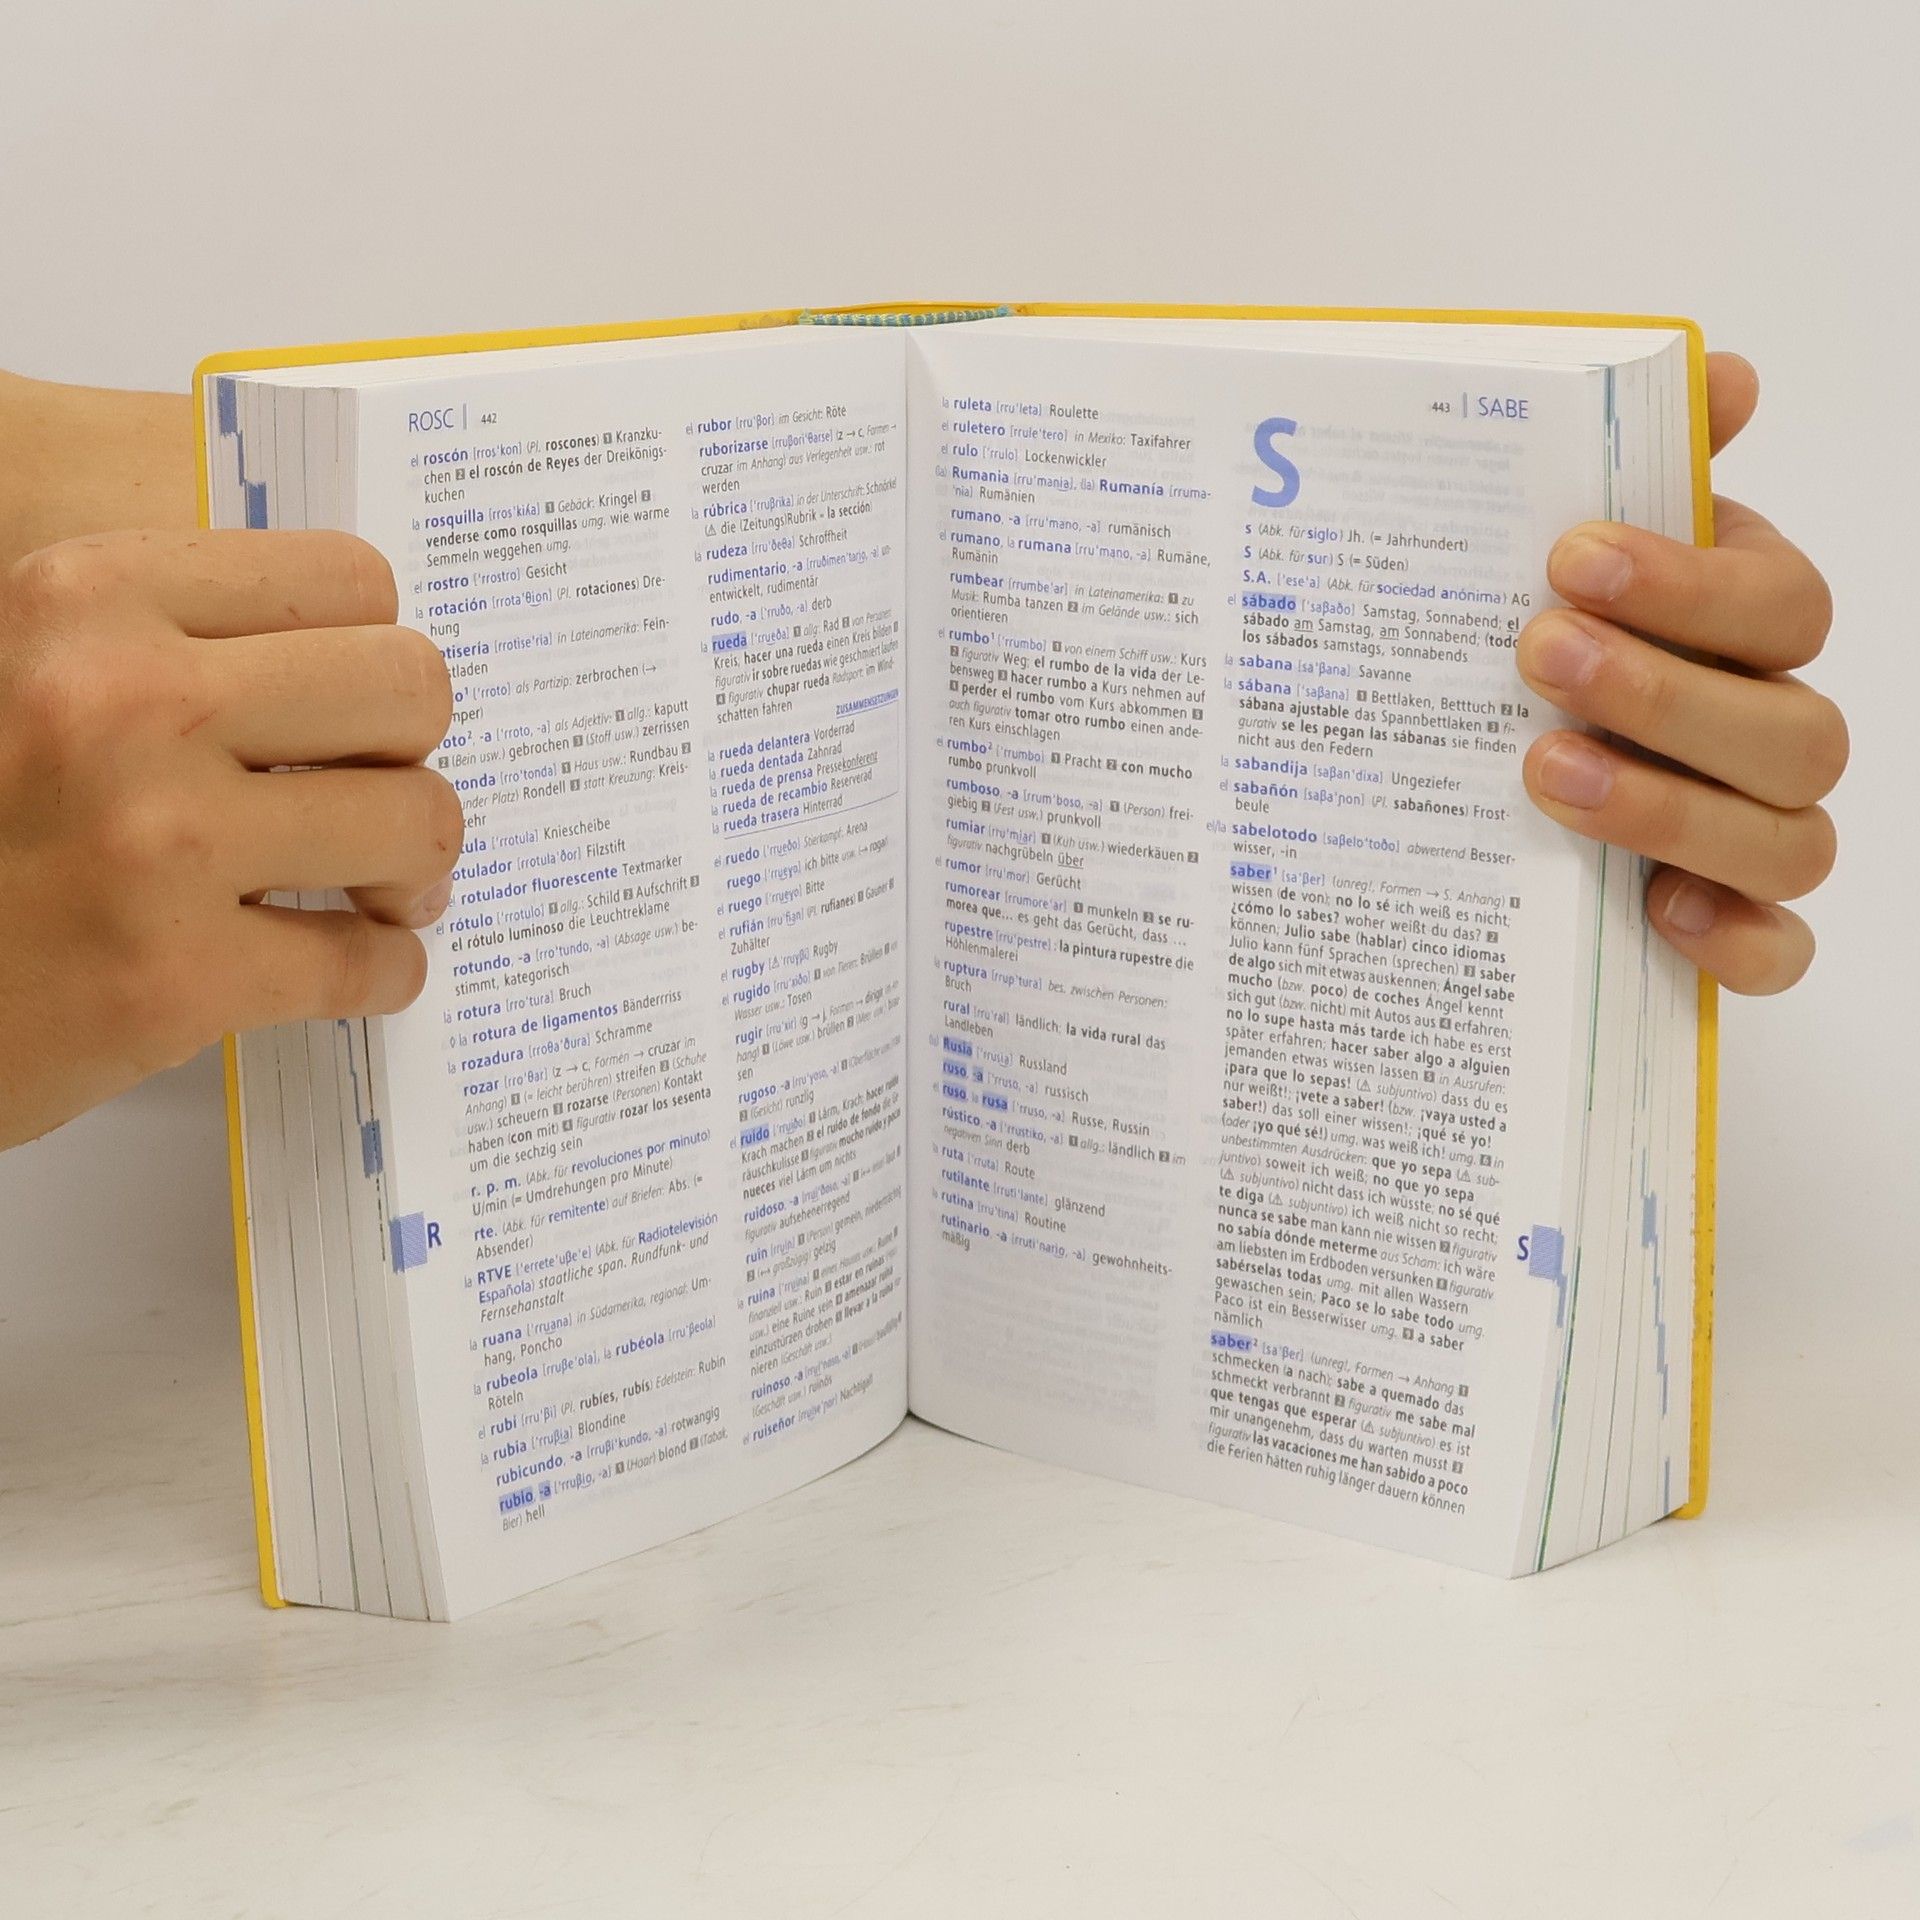 ROSC | 442
el roscón [rrosˈkon] (Pl. roscones) 1 Kranzku-
chen 2 el roscón de Reyes der Dreikönigs-
kuchen
la rosquilla [rrosˈkiʎa] 1 Gebäck: Kringel 2
venderse como rosquillas umg. wie warme
Semmeln weggehen umg.
el rostro [ˈrrostro] Gesicht
la rotación [rrotaˈθi̯on] (Pl. rotaciones) Dre-
hung
[rrotiseˈria] in Lateinamerika: Fein-
[ˈrroto] als Partizip: zerbrochen (→
-a [ˈrroto, -a] als Adjektiv: 1 allg.: kaputt
2 (Bein usw.) gebrochen 3 (Stoff usw.) zerrissen
[rroˈtonda] 1 Haus usw.: Rundbau 2
Platz) Rondell 3 statt Kreuzung: Kreis-
[ˈrrotula] Kniescheibe
[rrotulaˈðor] Filzstift
el rotulador fluorescente Textmarker
el rótulo [ˈrrotulo] 1 allg.: Schild 2 Aufschrift 3
el rótulo luminoso die Leuchtreklame
rotundo, -a [rroˈtundo, -a] (Absage usw.) be-
stimmt, kategorisch
la rotura [rroˈtura] Bruch
◊ la rotura de ligamentos Bänderriss
la rozadura [rroθaˈðura] Schramme
rozar [rroˈθar] (z → c, Formen → cruzar im
Anhang) 1 (= leicht berühren) streifen 2 (Schuhe
usw.) scheuern 3 rozarse (Personen) Kontakt
haben (con mit) 4 figurativ rozar los sesenta
um die sechzig sein
r. p. m. (Abk. für revoluciones por minuto)
U/min (= Umdrehungen pro Minute)
rte. (Abk. für remitente) auf Briefen: Abs. (=
Absender)
la RTVE [ˈerreteˈuβeˈe] (Abk. für Radiotelevisión
Española) staatliche span. Rundfunk- und
Fernsehanstalt
la ruana [ˈrru̯ana] in Südamerika, regional: Um-
hang, Poncho
la rubeola [rruβeˈola], la rubéola [rruˈβeola]
Röteln
el rubí [rruˈβi] (Pl. rubíes, rubís) Edelstein: Rubin
la rubia [ˈrruβi̯a] Blondine
rubicundo, -a [rruβiˈkundo, -a] rotwangig
rubio, -a [ˈrruβi̯o, -a] 1 (Haar) blond 2 (Tabak,
Bier) hell
R
el rubor [rruˈβor] im Gesicht: Röte
ruborizarse [rruβoriˈθarse] (z → c, Formen →
cruzar im Anhang) aus Verlegenheit usw.: rot
werden
la rúbrica [ˈrruβrika] in der Unterschrift: Schnörkel
⚠ die (Zeitungs)Rubrik = la sección
la rudeza [rruˈðeθa] Schroffheit
rudimentario, -a [rruðimenˈtari̯o, -a] un-
entwickelt, rudimentär
rudo, -a [ˈrruðo, -a] derb
la rueda [ˈrru̯eða] 1 allg: Rad 2 von Personen
Kreis; hacer una rueda einen Kreis bilden 3
figurativ ir sobre ruedas wie geschmiert laufen
4 figurativ chupar rueda Radsport: im Wind-
schatten fahren
ZUSAMMENSETZUNGEN
la rueda delantera Vorderrad
la rueda dentada Zahnrad
la rueda de prensa Pressekonferenz
la rueda de recambio Reserverad
la rueda trasera Hinterrad
el ruedo [ˈrru̯eðo] Stierkampf: Arena
ruego [ˈrru̯eɣo] ich bitte usw. (→ rogar)
el ruego [ˈrru̯eɣo] Bitte
el rufián [rruˈfi̯an] (Pl. rufianes) 1 Gauner 2
Zuhälter
el rugby [⚠ˈrruɣβi] Rugby
el rugido [rruˈxiðo] 1 von Tieren: Brüllen 2 von
Wasser usw.: Tosen
rugir [rruˈxir] (g → j, Formen → dirigir im An-
hang) 1 (Löwe usw.) brüllen 2 (Meer usw.)
sen
rugoso, -a [rruˈɣoso, -a] 1 (Oberfläche usw.)
2 (Gesicht) runzlig
el ruido [ˈrru̯iðo] 1 Lärm, Krach; hacer ruido
Krach machen 2 el ruido de fondo die Ge-
räuschkulisse 3 figurativ mucho ruido y pocas
nueces viel Lärm um nichts
ruidoso, -a [rru̯iˈðoso, -a] 1 (↔
figurativ aufsehenerregend
ruin [rru̯in] 1 (Person) gemein, niederträchtig
2 (↔ großzügig) geizig
la ruina [ˈrru̯ina] 1 eines Hauses usw.: Ruine 2
finanziell usw.: Ruin 3 estar en ruinas
usw.) eine Ruine sein 4 amenazar ruina
einzustürzen drohen 5 llevar a la ruina
nieren (Geschäft usw.)
ruinoso, -a [rru̯iˈnoso, -a] 1 (Haus) baufällig 2
(Geschäft usw.) ruinös
el ruiseñor [rru̯iseˈɲor] Nachtigall
443 | SABE
la ruleta [rruˈleta] Roulette
el ruletero [rruleˈtero] in Mexiko: Taxifahrer
el rulo [ˈrrulo] Lockenwickler
(la) Rumania [rruˈmani̯a], (la) Rumanía [rruma-
ˈnia] Rumänien
rumano, -a [rruˈmano, -a] rumänisch
el rumano, la rumana [rruˈmano, -a] Rumäne,
Rumänin
rumbear [rrumbeˈar] in Lateinamerika: 1 zu
Musik: Rumba tanzen 2 im Gelände usw.: sich
orientieren
el rumbo¹ [ˈrrumbo] 1 von einem Schiff usw.: Kurs
2 figurativ Weg; el rumbo de la vida der Le-
bensweg 3 hacer rumbo a Kurs nehmen auf
4 perder el rumbo vom Kurs abkommen 5
auch figurativ tomar otro rumbo einen ande-
ren Kurs einschlagen
el rumbo² [ˈrrumbo] 1 Pracht 2 con mucho
rumbo prunkvoll
rumboso, -a [rrumˈboso, -a] 1 (Person) frei-
giebig 2 (Fest usw.) prunkvoll
rumiar [rruˈmi̯ar] 1 (Kuh usw.) wiederkäuen 2
figurativ nachgrübeln über
el rumor [rruˈmor] Gerücht
rumorear [rrumoreˈar] 1 munkeln 2 se ru-
morea que... es geht das Gerücht, dass ...
rupestre [rruˈpestre] : la pintura rupestre die
Höhlenmalerei
la ruptura [rrupˈtura] bes. zwischen Personen:
Bruch
rural [rruˈral] ländlich; la vida rural das
Landleben
(la) Rusia [ˈrrusi̯a] Russland
ruso, -a [ˈrruso, -a] russisch
el ruso, la rusa [ˈrruso, -a] Russe, Russin
rústico, -a [ˈrrustiko, -a] 1 allg.: ländlich 2 im
negativen Sinn derb
la ruta [ˈrruta] Route
rutilante [rrutiˈlante] glänzend
la rutina [rruˈtina] Routine
rutinario, -a [rrutiˈnari̯o, -a] gewohnheits-
mäßig
S
s (Abk. für siglo) Jh. (= Jahrhundert)
S (Abk. für sur) S (= Süden)
S.A. [ˈeseˈa] (Abk. für sociedad anónima) AG
el sábado [ˈsaβaðo] Samstag, Sonnabend; el
sábado am Samstag, am Sonnabend; (todos
los sábados samstags, sonnabends
la sabana [saˈβana] Savanne
la sábana [ˈsaβana] 1 Bettlaken, Betttuch 2 la
sábana ajustable das Spannbettlaken 3 fi-
gurativ se les pegan las sábanas sie finden
nicht aus den Federn
la sabandija [saβanˈdixa] Ungeziefer
el sabañón [saβaˈɲon] (Pl. sabañones) Frost-
beule
el/la sabelotodo [saβeloˈtoðo] abwertend Besser-
wisser, -in
saber¹ [saˈβer] (unreg!, Formen → S. Anhang) 1
wissen (de von); no lo sé ich weiß es nicht;
¿cómo lo sabes? woher weißt du das? 2
können; Julio sabe (hablar) cinco idiomas
Julio kann fünf Sprachen (sprechen) 3 saber
de algo sich mit etwas auskennen; Ángel sabe
mucho (bzw. poco) de coches Ángel kennt
sich gut (bzw. nicht) mit Autos aus 4 erfahren;
no lo supe hasta más tarde ich habe es erst
später erfahren; hacer saber algo a alguien
jemanden etwas wissen lassen 5 in Ausrufen:
¡para que lo sepas! (⚠ subjuntivo) dass du es
nur weißt!; ¡vete a saber! (bzw. ¡vaya usted a
saber!) das soll einer wissen!; ¡qué sé yo!
(oder ¡yo qué sé!) umg. was weiß ich! umg. 6 in
unbestimmten Ausdrücken: que yo sepa (⚠ sub-
juntivo) soweit ich weiß; no que yo sepa
(⚠ subjuntivo) nicht dass ich wüsste; no sé qué
te diga (⚠ subjuntivo) ich weiß nicht so recht;
nunca se sabe man kann nie wissen 7 figurativ
no sabía dónde meterme aus Scham: ich wäre
am liebsten im Erdboden versunken 8 figurativ
sabérselas todas umg. mit allen Wassern
gewaschen sein; Paco se lo sabe todo umg.
Paco ist ein Besserwisser umg. 9 a saber
nämlich
saber² [saˈβer] (unreg!, Formen → Anhang 1
schmecken (a nach); sabe a quemado das
schmeckt verbrannt 2 figurativ me sabe mal
que tengas que esperar (⚠ subjuntivo) es ist
mir unangenehm, dass du warten musst 3
figurativ las vacaciones me han sabido a poco
die Ferien hätten ruhig länger dauern können
S